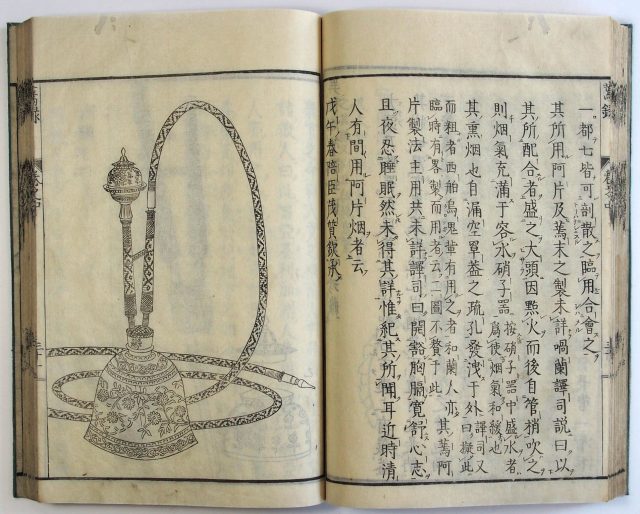 一都七皆可剖散之臨用合會之
其所用阿片及蔫末之製未詳喎蘭譯司說曰以
其所配合者盛之大頭因點火而後自管梢吹之
則烟氣充滿于容水硝子器
按硝子器中盛水者
爲使烟氣和緩也
其熏烟也自漏空罩葢之疏孔發洩于外
譯司又
曰擬此
而粗者西舶烏鬼輩有用之者和蘭人亦
臨時有畧製而用者云二圖不贅于此
其蔫阿
片製法主用共未詳譯司曰開豁胸膈寬舒心志
且夜忍睡眠然未得其詳惟紀其所聞耳近時清
人有間用阿片烟者云
戊午春陪臣茂質欽承